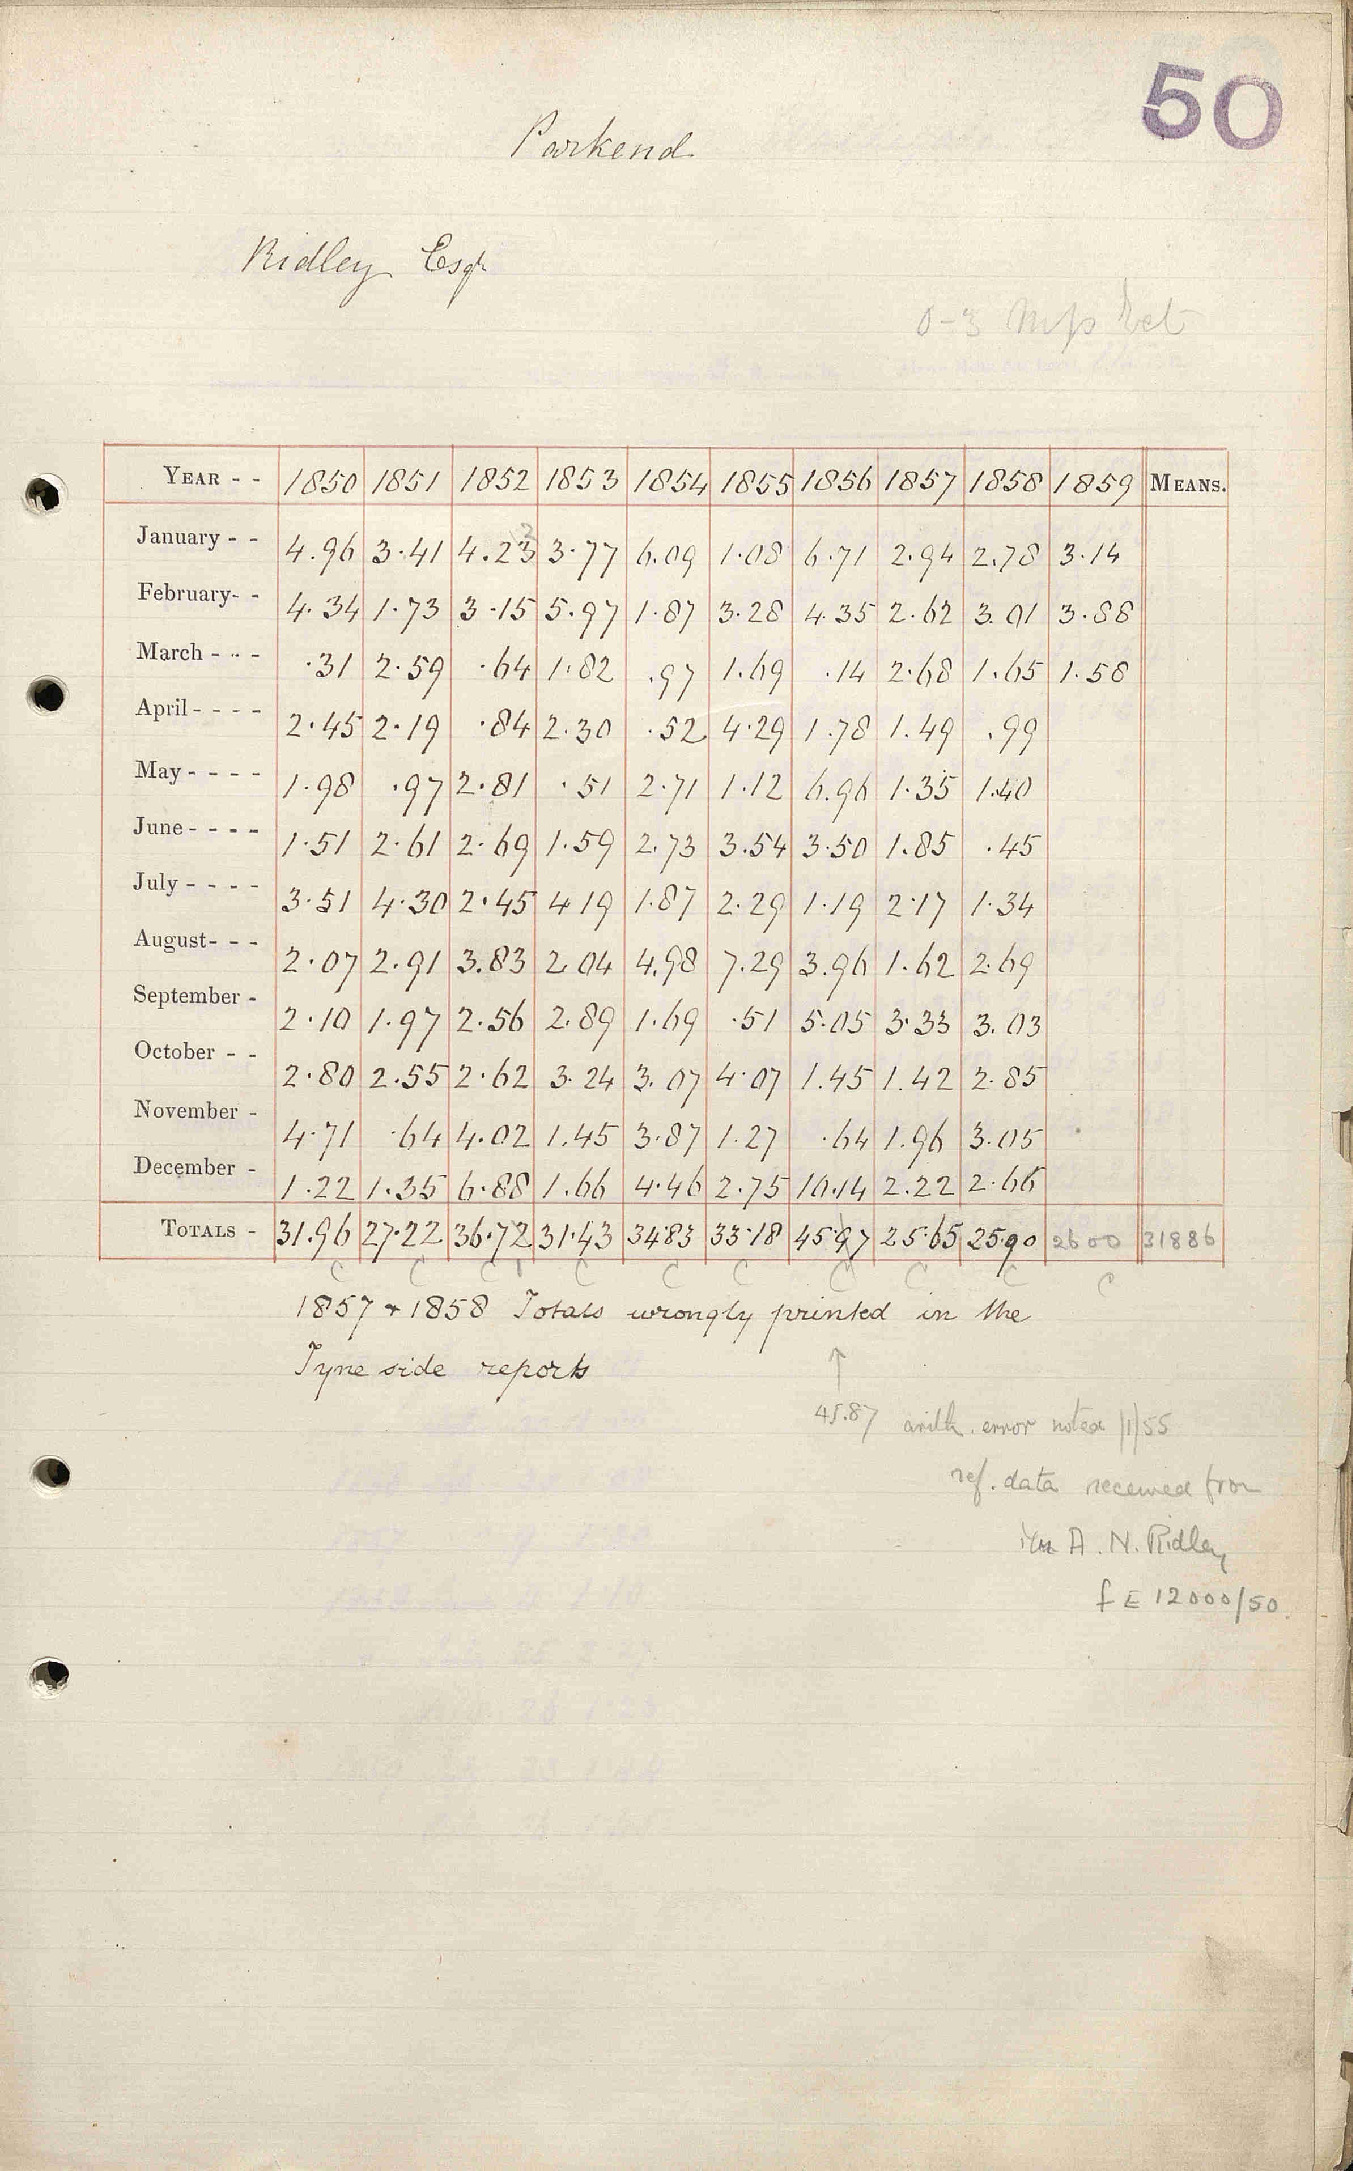 50
Parkend
Ridley Esqr
YEAR - - 1850 1851 1852 1853 1854 1855 1856 1857 1858 1859 MEANS.
January - - 4.96 3.41 4.23 3.77 6.09 1.08 6.71 2.94 2.78 3.14
February- - 4.34 1.73 3.15 5.97 1.87 3.28 4.35 2.62 3.01 3.88
March - - - .31 2.59 .64 1.82 .97 1.69 .14 2.68 1.65 1.58
April- - - - 2.45 2.19 .84 2.30 .52 4.29 1.78 1.49 .99
May- - - - 1.98 .97 2.81 .51 2.71 1.12 6.96 1.35 1.40
June- - - - 1.51 2.61 2.69 1.59 2.73 3.54 3.50 1.85 .45
July - - - - 3.51 4.30 2.45 4.19 1.87 2.29 1.19 2.17 1.34
August- - - 2.07 2.91 3.83 2.04 4.98 7.29 3.96 1.62 2.69
September - 2.10 1.97 2.56 2.89 1.69 .51 5.05 3.33 3.03
October - - 2.80 2.55 2.62 3.24 3.07 4.07 1.45 1.42 2.85
November - 4.71 .64 4.02 1.45 3.87 1.27 .64 1.96 3.05
December - 1.22 1.35 6.88 1.66 4.46 2.75 10.14 2.22 2.66
TOTALS - 31.96 27.22 36.72 31.43 34.83 33.18 45.97 25.65 25.90 2600 31886
c c c c c c c c c c
1857 + 1858 Totals wrongly printed in the
Tyne side reports
↑
45.87 arith. error noted 1/1/55
ref. data received from
Mr A. N. Ridley
f E 12000/50.